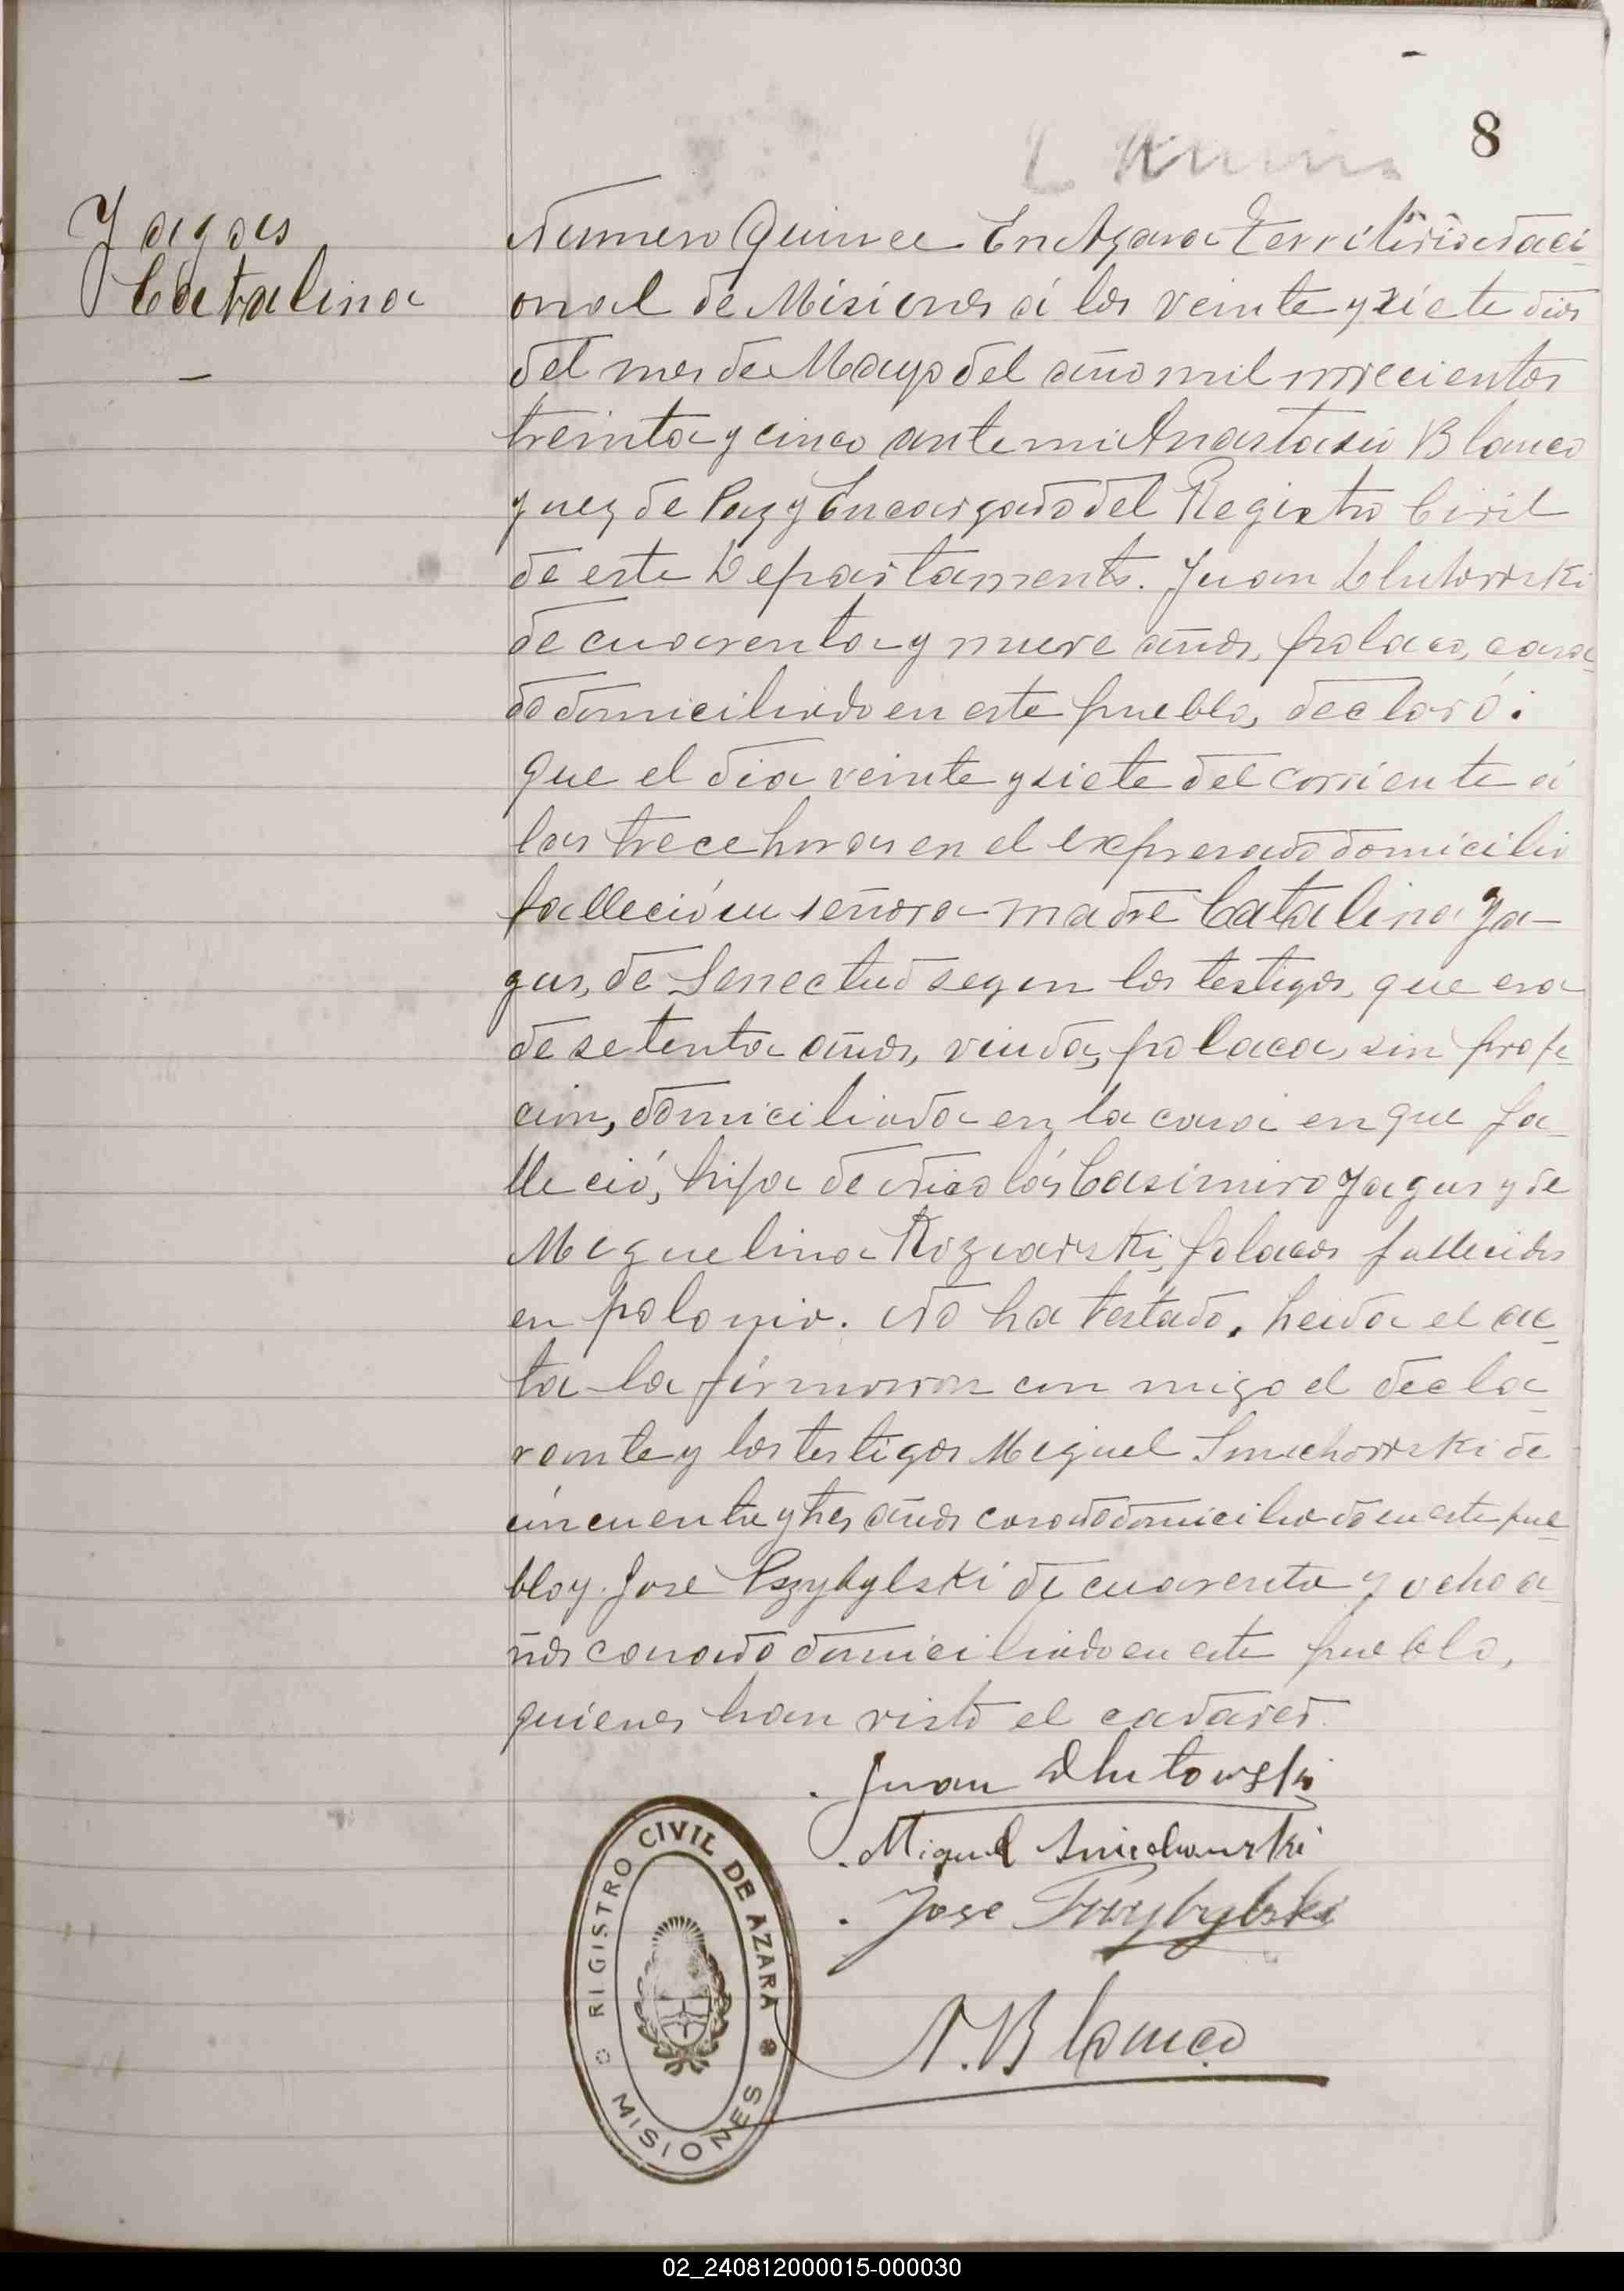 8
Jagas
Catalina
Numero Quince En Azara Territorio Naci-
onal de Misiones á los veinte y siete dias
del mes de Mayo del año mil novecientos
treinta y cinco ante mi Anastasio Blanco
Juez de Paz y Encargado del Registro Civil
de este Departamento. Juan Dlutowski
de cuarenta y nueve años, polaco, casa-
do domiciliado en este pueblo, declaró:
Que el dia veinte y siete del corriente á
las trece horas en el expresado domicilio
falleció su señora madre Catalina Ja-
gus, de Senectud segun los testigos, que era
de setenta años, viuda, polaca, sin profe-
cion, domiciliada en la casa en que fa-
lleció, hija de Nicolás Casimiro Jagus y de
Miguelina polacos fallecidos
en polonia. No ha testado, leida el ac-
ta la firmaron con migo el decla-
rante y los testigos Miguel Smichowski de
cincuenta y tres años casado domiciliado en este pue-
blo y José Pszybylski de cuarenta y ocho a-
ños casado domiciliado en este pueblo,
quienes han visto el cadaver.
Juan Dlutowski
Miguel Smichowski
Jose Przybylski
A. Blanco
REGISTRO CIVIL DE AZARA
MISIONES
02_240812000015-000030